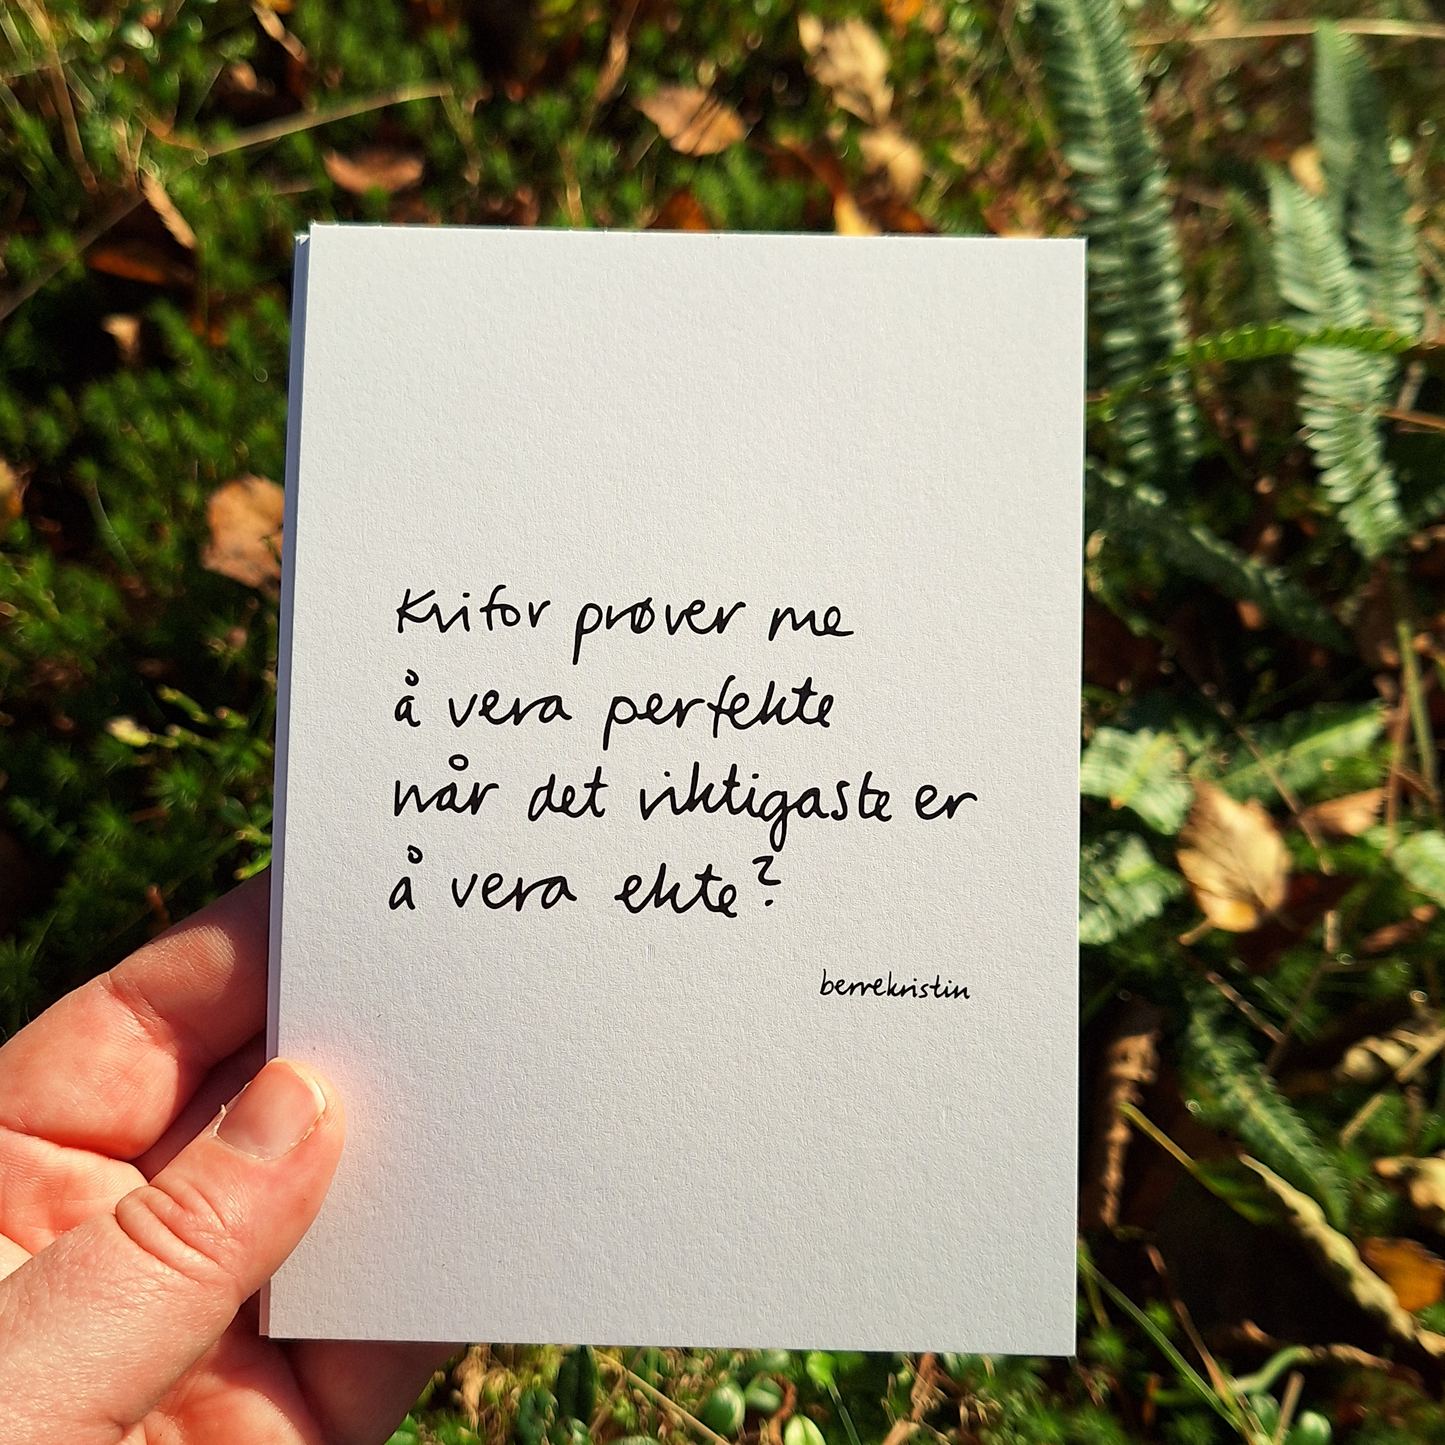 Kvifor prøver me
å vera perfekte
når det viktigaste er
å vera ekte?
berrekristin